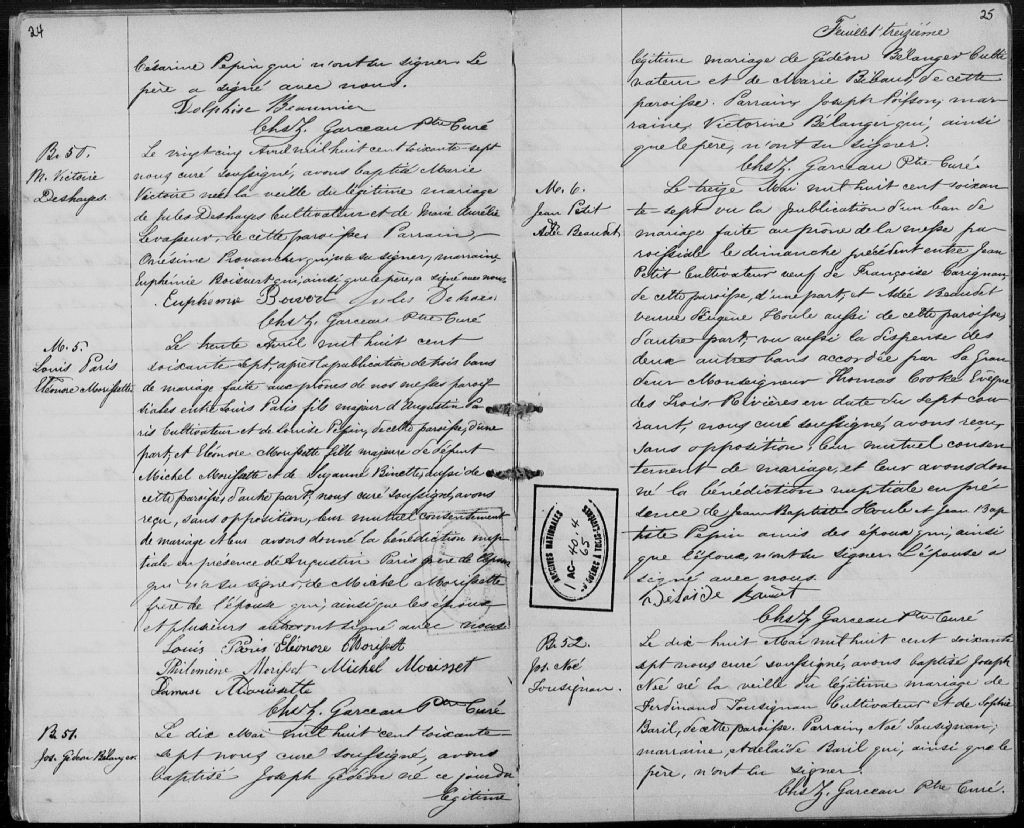 24
Césarine Pepin qui n'ont su signer. Le
père a signé avec nous.
Dolphise Beaumier
Chs Z. Garceau Ptre Curé
B. 50.
M. Victoire
Deshayes.
Le vingt cinq Avril mil huit cent soixante-sept
nous curé soussigné, avons baptisé Marie
Victoire née la veille du légitime mariage
de Jules Deshayes Cultivateur et de Marie Aurélie
Levasseur, de cette paroisse. Parrain,
Onésime Provancher, qui a su signer, marraine
Euphémie Boisvert qui, ainsi que le père, a signé avec nous.
Chs Z. Garceau Ptre Curé
M. 5.
Louis Paris
Eléonore Morissette
Le trente Avril mil huit cent
soixante-sept, après la publication de trois bans
de mariage faite aux prônes de nos messes parois
siales entre Louis Paris fils majeur d'Augustin Pa
ris Cultivateur et de Pepin, de cette paroisse, d'une
part, et Eléonore Morissette fille majeure de défunt
Michel Morissette et de Suzanne Binette, aussi de
cette paroisse, d'autre part, nous curé soussigné, avons
reçu, sans opposition, leur mutuel consentement
de mariage et leur avons donné la bénédiction nup
tiale en présence de Augustin Paris père de l'époux
qui n'a su signer, de Michel Morissette
frère de l'épouse qui, ainsi que les époux
et plusieurs autres ont signé avec nous
Louis Paris Eléonore Morisset
Philomène Morisset Michel Morisset
Damase Morissette
Chs Z. Garceau Ptre Curé
B. 51.
Jos. Gédéon Bélanger.
Le dix Mai mil huit cent soixante-
sept nous curé soussigné, avons
baptisé Joseph Gédéon né ce jour du
légitime
25
Feuillet treizième
légitime mariage de Gédéon Bélanger Culti
vateur et de Marie Bibaud, de cette
paroisse. Parrain, Joseph Poisson, mar-
raine, Victorine Bélanger qui, ainsi
que le père, n'ont su signer.
Chs Z. Garceau Ptre Curé.
M. 6.
Jean Petit
Adée Beaudet
Le treize Mai mil huit cent soixan
te-sept vu la publication d'un ban de
mariage faite au prône de la messe pa-
roissiale le dimanche précédent entre Jean
Petit Cultivateur veuf de Françoise Carignan,
de cette paroisse, d'une part, et Adée Beaudet
veuve Eugène Houle aussi de cette paroisse,
d'autre part, vu aussi la dispense des
deux autres bans accordée par Sa Gran
deur Monseigneur Thomas Cooke Evêque
des Trois-Rivières en date du sept cou-
rant, nous curé soussigné, avons reçu,
sans opposition, leur mutuel consen-
tement de mariage, et leur avons don
né la bénédiction nuptiale en pré-
sence de Jean-Baptiste Houle et Jean Bap
tiste Pepin amis des époux qui, ainsi
que l'époux, n'ont su signer. L'épouse a
signé avec nous.
Chs Z. Garceau Ptre Curé
ARCHIVES NATIONALES
1 AC-40-4
65
D'OEUVRE À TROIS-RIVIÈRES
B. 52.
Jos. Noé
Lousignan.
Le dix-huit Mai mil huit cent soixante
sept nous curé soussigné, avons baptisé Joseph
Noé né la veille du légitime mariage de
Ferdinand Lousignan Cultivateur et de Sophie
Baril, de cette paroisse. Parrain, Noé Lousignan,
marraine, Adelaïde Baril qui, ainsi que le
père, n'ont su signer.
Chs Z. Garceau Ptre Curé.